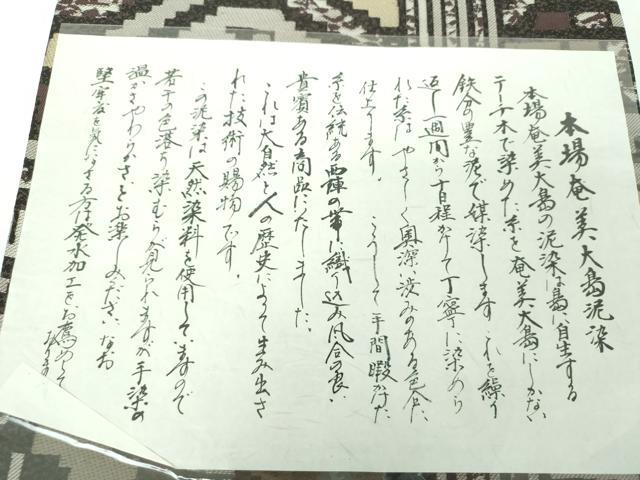 本場奄美大島泥染
本場奄美大島の泥染は島に自生する
テーチ木で染めた糸を奄美大島にしかない
鉄分の豊な泥で媒染します これを繰り
返し一週間から十日程かけて丁寧に染めら
れた糸は やさしく奥深い渋みのある色合に
仕上ります。 こうして手間暇かけた
糸を伝統ある西陣の帯に織り込み風合の良い
貴賓ある商品にいたしました。
これは大自然と人の歴史によって生み出さ
れた技術の賜物です。
この泥染は天然染料を使用していますので
若干の色落り染むらが見られますが手染の
温かさやわらかさをお楽しみください なお
堅牢度を気になさる方は発水加工をお薦めして
おります。